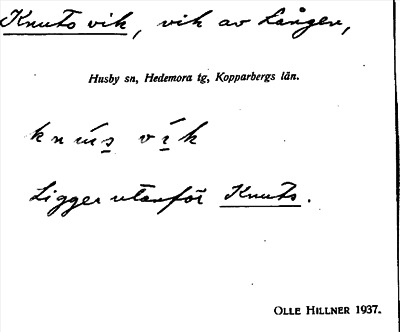 Knuts vik, vik av Lången,
Husby sn, Hedemora tg, Kopparbergs län.
knús vík
Ligger utanför Knuts.
OLLE HILLNER 1937.